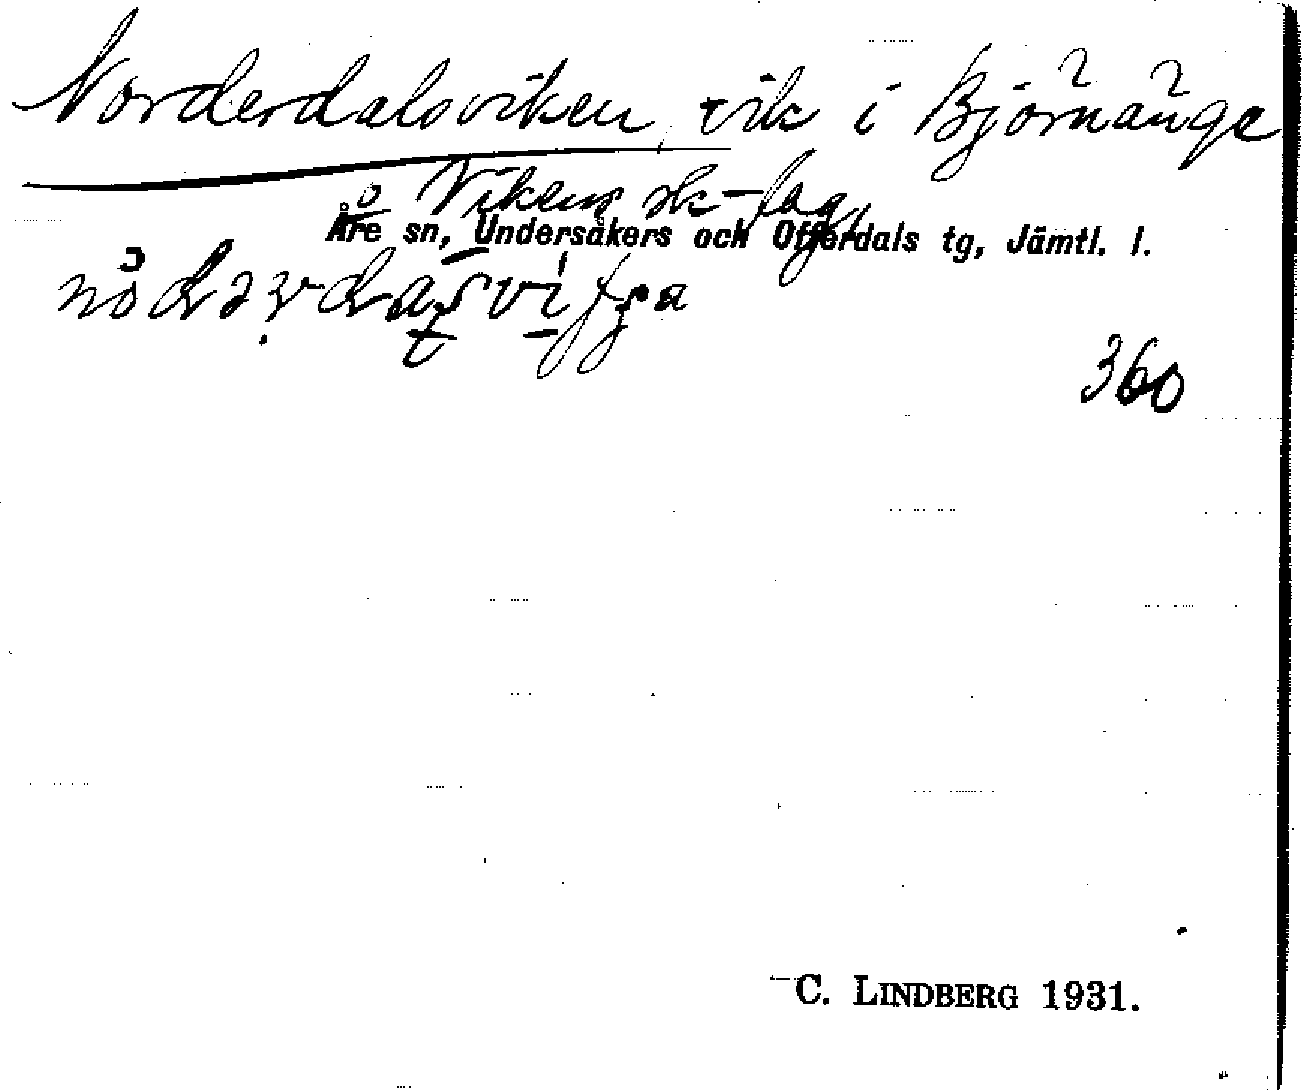 Norderdalsviken, vik i Björnänge
å Vikens sk-lag,
Åre sn, Undersåkers och Offerdals tg, Jämtl. l.
360
C. LINDBERG 1931.